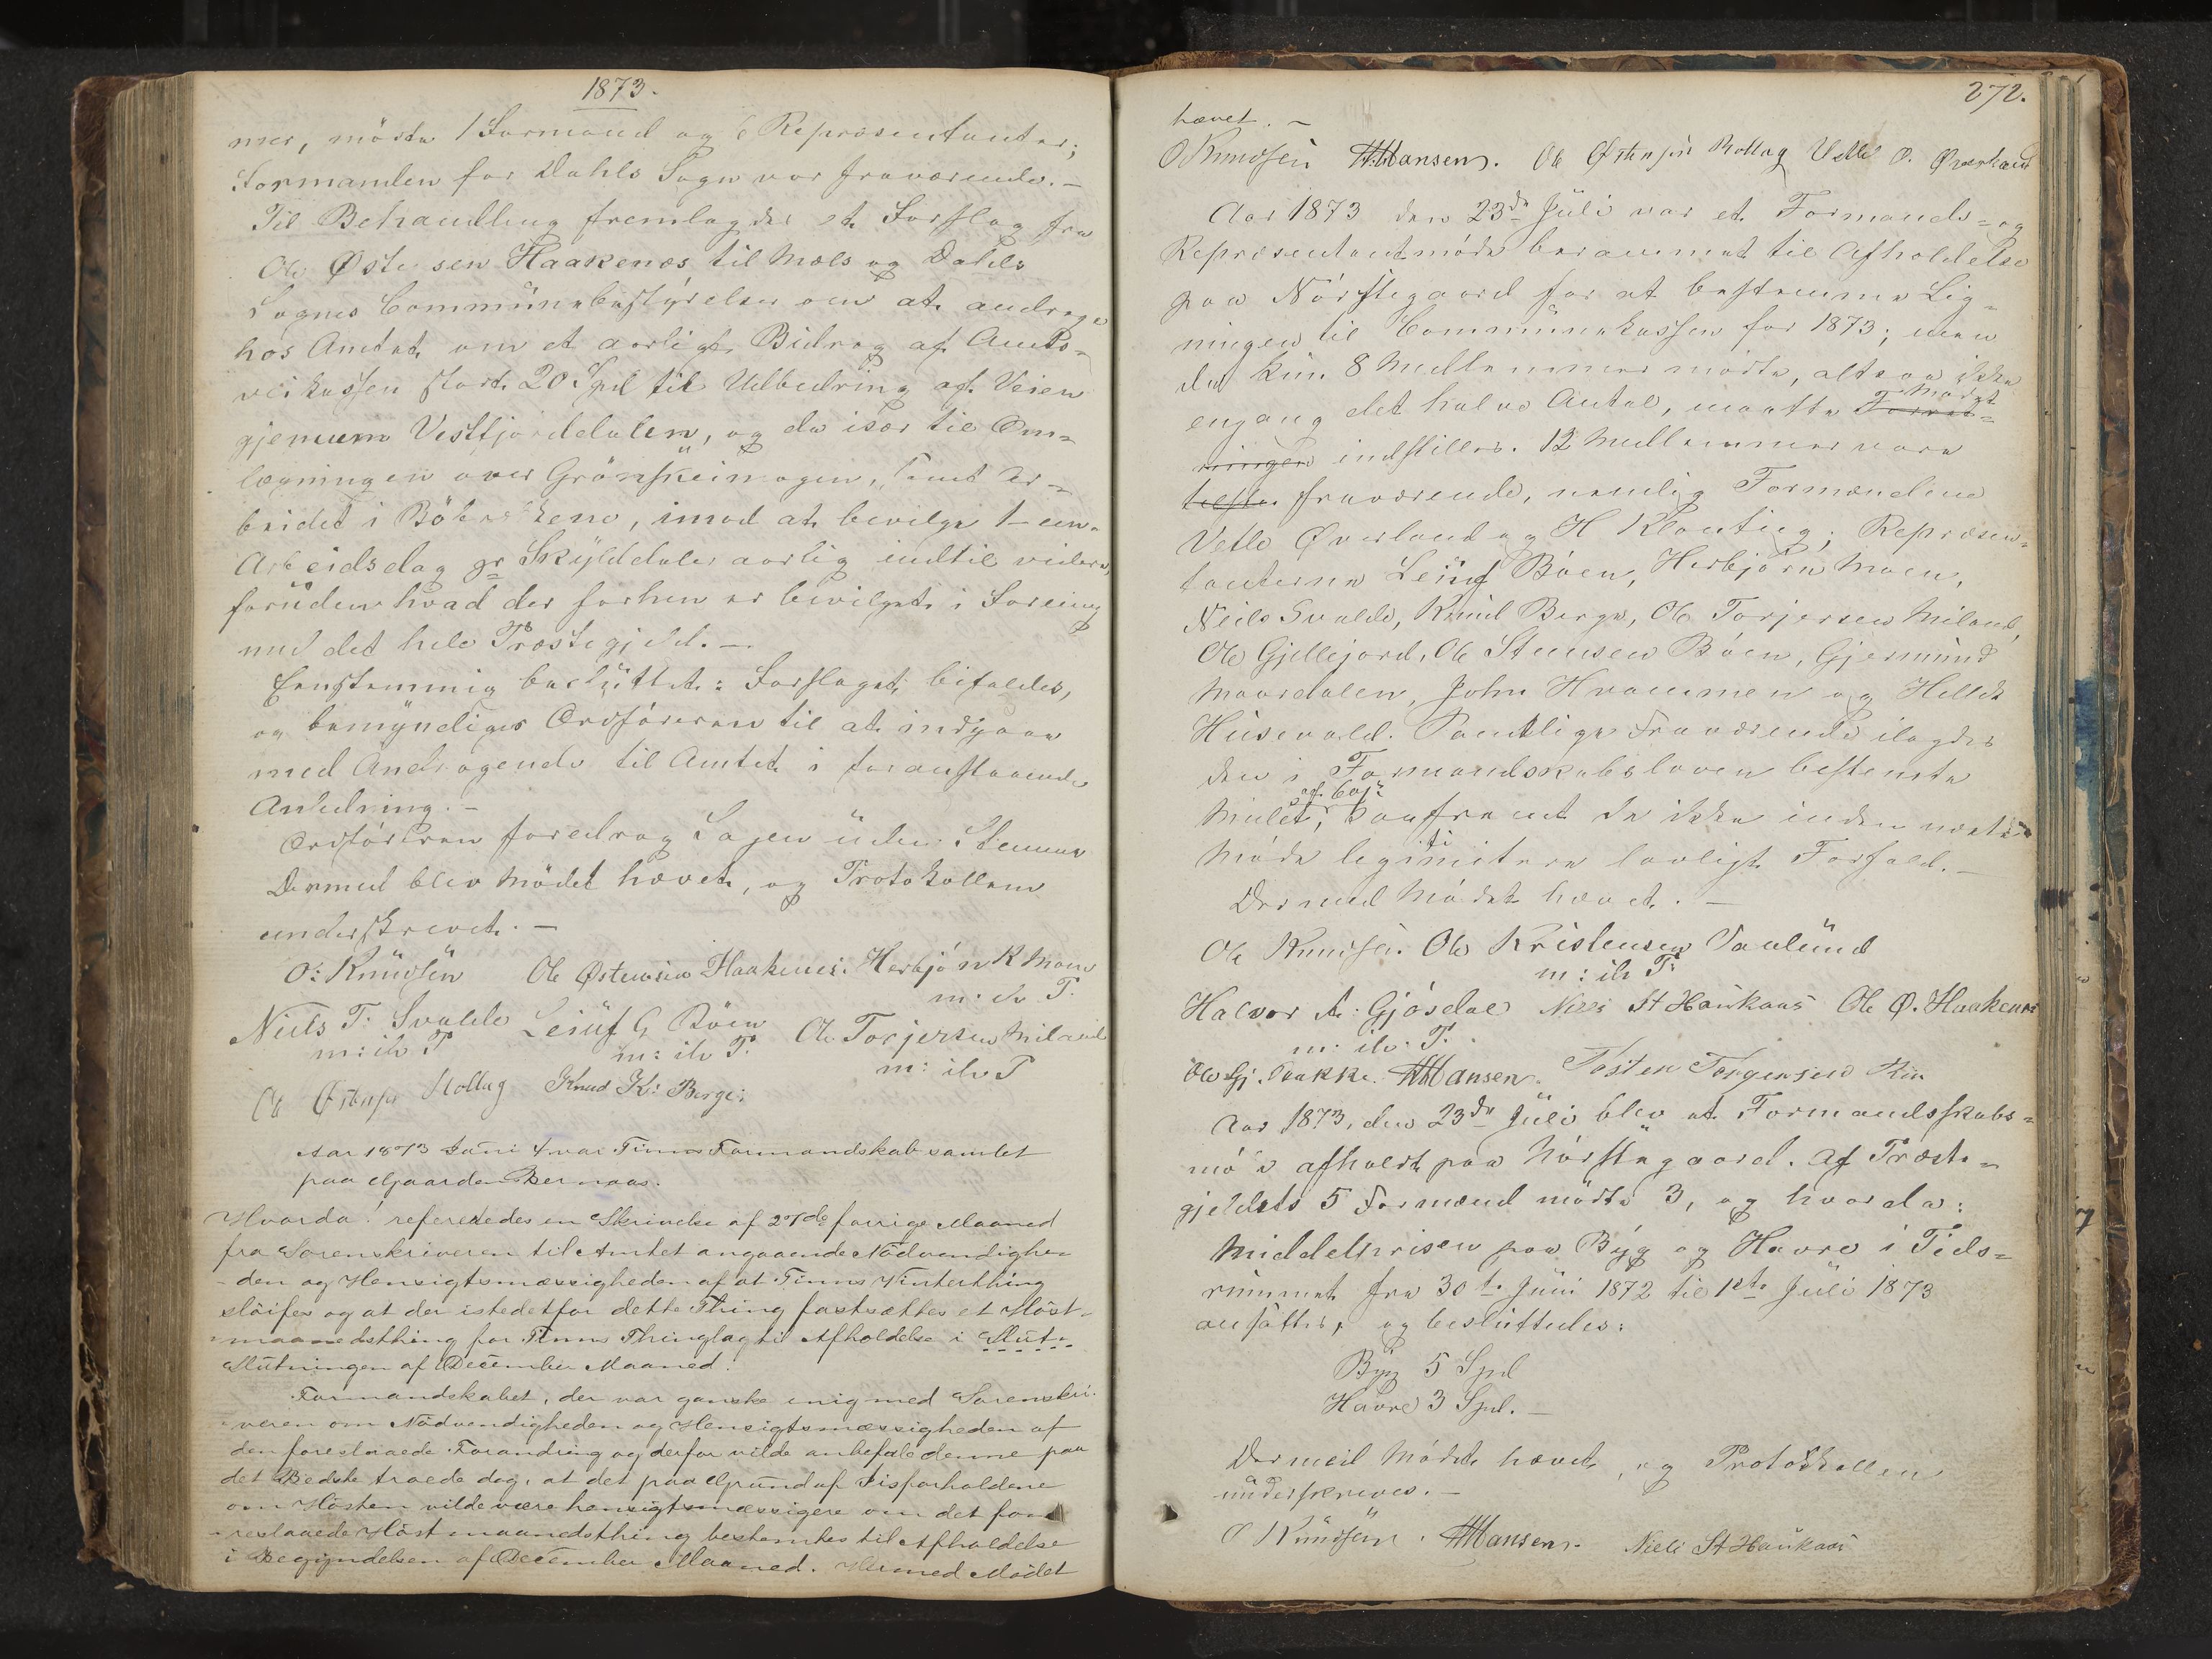 1873.
mer, mödte 1 Formand og 6 Repræsentanter;
Formanden for Dahls Sogn var fraværende. –
Til Behandling fremlagdes et Forslag fra
Ole Østensen Haakenæs til Mæls og Dahls
Sognes Communebestyrelse om at andrage
hos Amtet om et aarligt Bidrag af Amts-
veikassen stort 20 Spd til Udbedring af Veien
gjennem Vestfjorddalen, og da især til Om-
lægningen over Grönskeimogen, samt Ar-
beidet i , imod at bevilge 1 – een –
Arbeidsdag pr Skylddaler aarlig indtil videre,
foruden hvad der forhen er bevilget i Forening
med det hele Præstegjeld. –
Eenstemmig besluttet: Forslaget bifaldes,
og bemyndiges Ordföreren til at indgaae
med Andragende til Amtet i foranstaaende
Anledning. –
Ordföreren foredrog Sagen uden Stemme
Dermed blev Mödet hævet, og Protokollen
underskrevet. –
O: Knudsen Ole Østensen Haakenes. Herbjörn K Moen
m: ih P.
Niels T. Svadde Leiuf G Böen Ole Torjersen Miland
m: ih P m: ih P. m: ih P
Ole Østensen Rollag Knud K: Berge:
Aar 1873 Juni 4 var Tinns Formandskab samlet
paa Gaarden Bernaas.
Hvorda! refereredes en Skrivelse af 27de forrige Maaned
fra Sorenskriveren til Amtet angaaende Nödvendighe-
den og Hensigtsmæssigheden af at Tinns Vinterthing
slöifes og at der istedetfor dette Thing fastsættes et Höst-
maanedsthing for Tinns Thinglag til Afholdelse i Slut-
Slutningen af December Maaned.
Formandskabet, der var ganske enig med Sorenskri-
veren om Nödvendigheden og Hensigtsmæssigheden af
den foreslaaede Forandring og derfor vilde anbefale denne paa
det Bedste troede dog, at det paa Grund af Iisforholdene
om Hösten vilde være hensigtsmæssigere om det fore-
reslaaede Höstmaanedsthing bestemtes til Afholdelse
i Begyndelsen af December Maaned. Hermed Mödet
272.
hævet. –
O Knudsen HHansen. Ole Østensen Rollag Vetle O. Øverland
Aar 1873 den 23de Juli var et Formands- og
Repræsentantmöde berammet til Afholdelse
paa Nörstegaard for at bestemme Lig-
ningen til Communekassen for 1873; men
da kun 8 Medlemmer mödte, altsaa ikke
engang det halve Antal, maatte Forret- Mödet
ningen indstilles. 12 Medlemmer vare
fraværende, nemlig Formændene
Vetle Øverland og H Klonteig; Repræsen-
tanterne Leiuf Böen, Herbjörn Moen,
Neils Svadde, Knud Berge, Ole Torjersen Miland,
Ole Gjellejord, Ole Steensen Böen, Gjermund
Maardalen, John Hvammen og Hellek
Husevold. Samtlige Fraværende ilagdes
den i Formandskabsloven bestemte
Mulct, saafremt de ikke inden næste
Möde legitimitere lovligt Forfald. – ti
Dermed Mödet hævet. –
Ole Knudsen. Ole Kristensen Taulund
m: ih P:
Halvor A: Gjösdal Niels St Haukaas Ole Ø. Haakenæs
m: ih. P.
Ole Gj. Bakke. HHansen. Tosten Torgersen Rui
Aar 1873, den 23de Juli blev et Formandsskabs-
möde afholdt paa Nörstegaard. Af Præste-
gjeldets 5 Formænd mödte 3, og hvorda:
Middelprisen paa Byg og Havre i Tids-
rummet fra 30te Juni 1872 til 1ste Juli 1873
ansattes, og besluttedes:
Byg 5 Spd
Havre 3 Spd. –
Dermed Mödet hævet, og Protokollen
underskreves. –
O Knudsen. HHansen. Niels St Haukaas